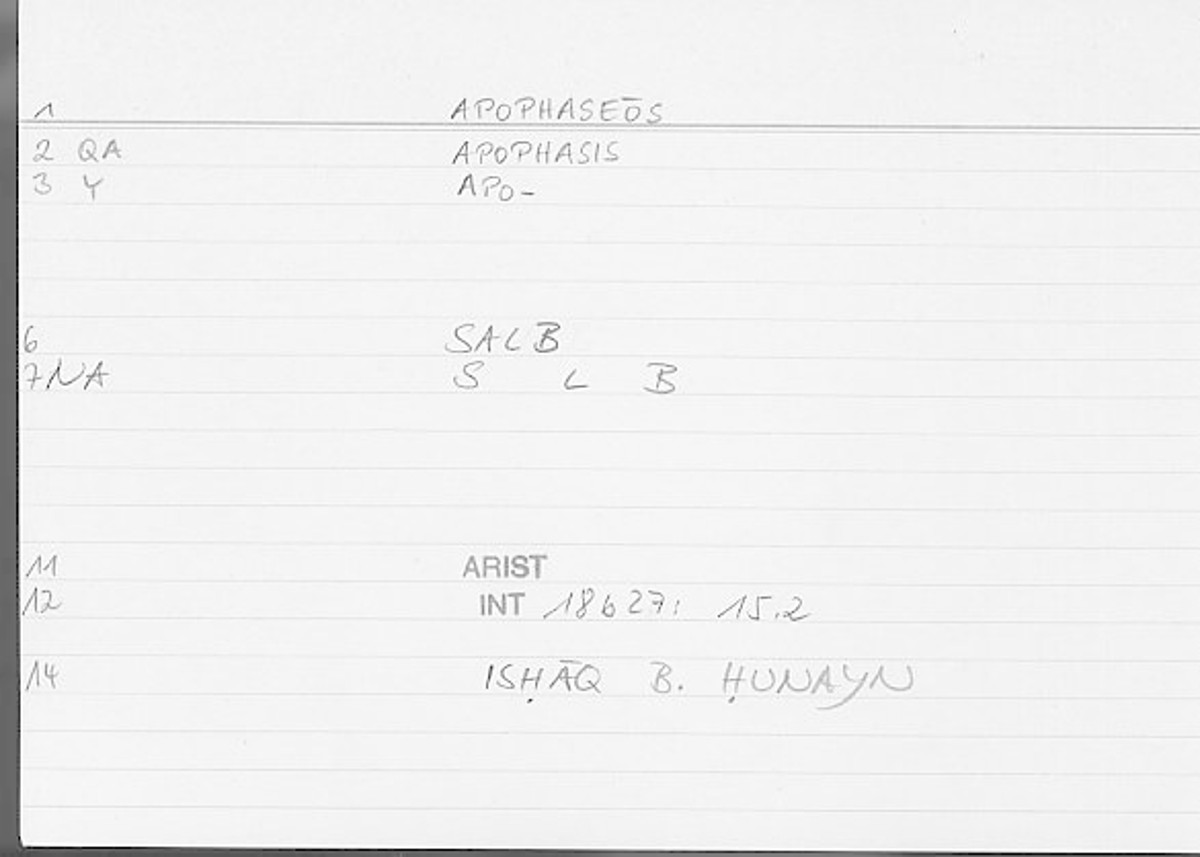 1 APOPHASEŌS
2 QA APOPHASIS
3 Y APO-
6 SALB
7 NA S L B
11 ARIST
12 INT 18b27: 15.2
14 ISḤĀQ B. ḤUNAYN